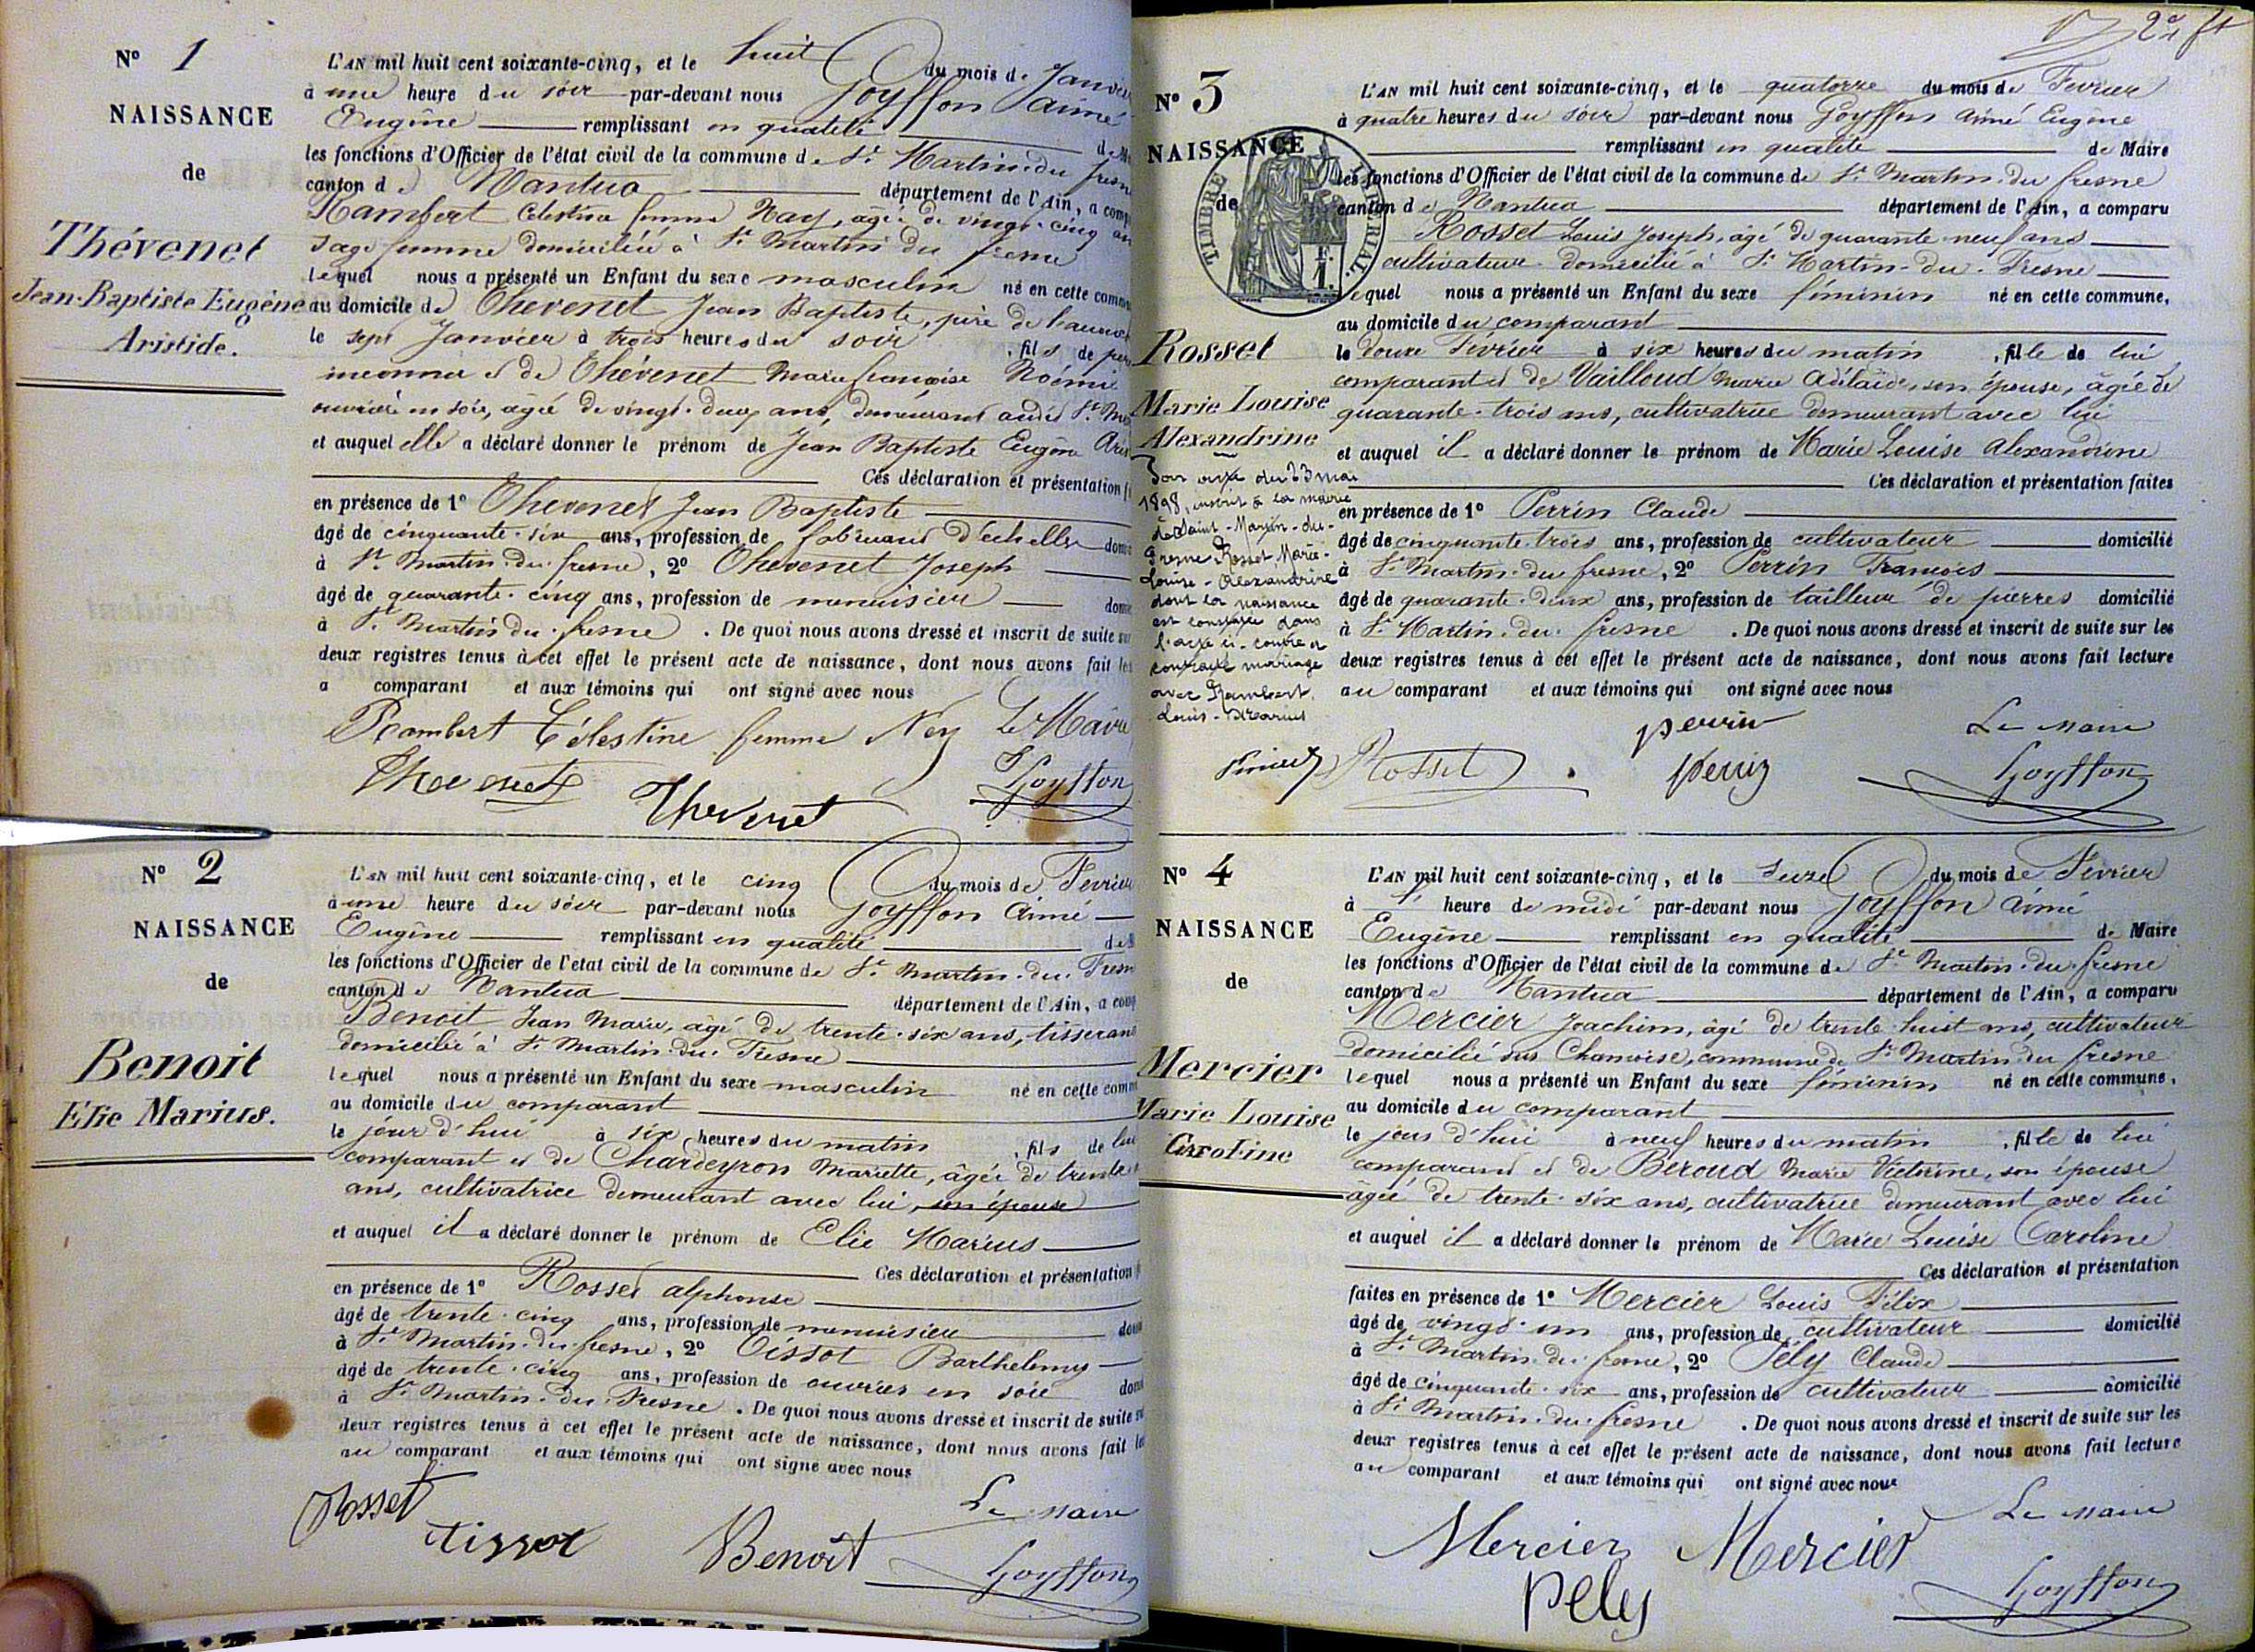 N° 1
NAISSANCE
de
Thévenet
Jean-Baptiste Eugène
Aristide.
L'AN mil huit cent soixante-cinq, et le huit du mois de Janvier
à une heure du soir par-devant nous Goyffon Aimé
Eugène remplissant en qualité de M
les fonctions d'Officier de l'état civil de la commune de St Martin-du fresn
canton de Nantua département de l'Ain, a comp
Rambert Celestine femme Nay, âgée de vingt-cinq an
sage femme domiciliée à St Martin du fresne
lequel nous a présenté un Enfant du sexe masculin né en cette commu
au domicile de Thevenet Jean Baptiste, père de l'accou
le sept Janvier à trois heures du soir , fils de père
inconnu et de Thévenet Marie françoise Noémi
ouvrière en soie, âgée de vingt-deux ans, demeurant audit St Ma
et auquel elle a déclaré donner le prénom de Jean Baptiste Eugène Aris
Ces déclaration et présentation f
en présence de 1° Thevenet Jean Baptiste
âgé de cinquante-six ans, profession de fabricant d'échelles domi
à St Martin du fresne, 2° Thevenet Joseph
âgé de quarante-cinq ans, profession de menuisier domi
à St Martin du fresne . De quoi nous avons dressé et inscrit de suite su
deux registres tenus à cet effet le présent acte de naissance, dont nous avons fait lec
a comparant et aux témoins qui ont signé avec nous
Rambert Célestine femme Ney Le Maire
Thevenet Thevenet Goyffon
N° 2
NAISSANCE
de
Benoit
Élie Marius.
L'AN mil huit cent soixante-cinq, et le cinq du mois de Février
à une heure du soir par-devant nous Goyffon Aimé
Eugène remplissant en qualité de M
les fonctions d'Officier de l'état civil de la commune de St Martin-du-Fresn
canton de Nantua département de l'Ain, a comp
Benoit Jean Marie, âgé de trente-six ans, tisserand
domicilié à St Martin-du-Fresne
lequel nous a présenté un Enfant du sexe masculin né en cette comm
au domicile du comparant
le jour d'hui à six heures du matin , fils de lui
comparant et de Chardeyron Mariette, âgée de trente
ans, cultivatrice demeurant avec lui, son épouse
et auquel il a déclaré donner le prénom de Elie Marius
Ces déclaration et présentation
en présence de 1° Rosset alphonse
âgé de trente-cinq ans, profession de menuisier dom
à St Martin-du-fresne, 2° Tissot Barthelemy
âgé de trente-cinq ans, profession de ouvrier en soie dom
à St Martin-du-Fresne . De quoi nous avons dressé et inscrit de suite su
deux registres tenus à cet effet le présent acte de naissance, dont nous avons fait lec
au comparant et aux témoins qui ont signé avec nous
Rosset Le Maire
Tissot Benoît Goyffon
2e ft
N° 3
NAISSANCE
de
TIMBRE IMPÉRIAL
1 F.
Rosset
Marie Louise
Alexandrine
Par acte du 23 mai
1898, inscrit à la mairie
de Saint-Martin-du-
Fresne, Rosset Marie-
Louise-Alexandrine
dont la naissance
est constatée dans
l'acte ci-contre a
contracté mariage
avec Rambert
Louis-Marius
L'AN mil huit cent soixante-cinq, et le quatorze du mois de Fevrier
à quatre heures du soir par-devant nous Goyffon Aimé Eugène
remplissant en qualité de Maire
les fonctions d'Officier de l'état civil de la commune de St Martin-du fresne
canton de Nantua département de l'Ain, a comparu
Rosset Louis Joseph, âgé de quarante-neuf ans
cultivateur domicilié à St Martin-du-Fresne
lequel nous a présenté un Enfant du sexe féminin né en cette commune,
au domicile du comparant
le douze Février à six heures du matin , fille de lui
comparant et de Vailloud Marie Adélaïde, son épouse, âgée de
quarante-trois ans, cultivatrice demeurant avec lui
et auquel il a déclaré donner le prénom de Marie Louise Alexandrine
Ces déclaration et présentation faites
en présence de 1° Perrin Claude
âgé de cinquante-trois ans, profession de cultivateur domicilié
à St Martin-du fresne, 2° Perrin François
âgé de quarante-deux ans, profession de tailleur de pierres domicilié
à St Martin-du-fresne . De quoi nous avons dressé et inscrit de suite sur les
deux registres tenus à cet effet le présent acte de naissance, dont nous avons fait lecture
au comparant et aux témoins qui ont signé avec nous
perrin Le Maire
Rosset perrin Goyffon
N° 4
NAISSANCE
de
Mercier
Marie Louise
Caroline
L'AN mil huit cent soixante-cinq, et le seize du mois de Février
à heure de midi par-devant nous Goyffon Aimé
Eugène remplissant en qualité de Maire
les fonctions d'Officier de l'état civil de la commune de St Martin-du-fresne
canton de Nantua département de l'Ain, a comparu
Mercier Joachim, âgé de trente-huit ans, cultivateur
domicilié sus Chamoise, commune de St Martin du fresne
lequel nous a présenté un Enfant du sexe féminin né en cette commune,
au domicile du comparant
le jour d'hui à neuf heures du matin , fille de lui
comparant et de Béroud Marie Victorine, son épouse
âgée de trente-six ans, cultivatrice demeurant avec lui
et auquel il a déclaré donner le prénom de Marie Louise Caroline
Ces déclaration et présentation
faites en présence de 1° Mercier Louis Félix
âgé de vingt-un ans, profession de cultivateur domicilié
à St Martin-du-fresne, 2° Pély Claude
âgé de cinquante-six ans, profession de cultivateur domicilié
à St Martin-du-fresne . De quoi nous avons dressé et inscrit de suite sur les
deux registres tenus à cet effet le présent acte de naissance, dont nous avons fait lecture
au comparant et aux témoins qui ont signé avec nous
Mercier Mercier Le Maire
Pely Goyffon